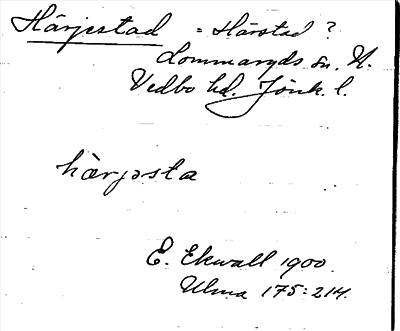 Härjestad = Härstad?
Lommaryds sn. N.
Vedbo hd. Jönk. l.
hærjəsta
E. Ekwall 1900.
Ulma 175:214.